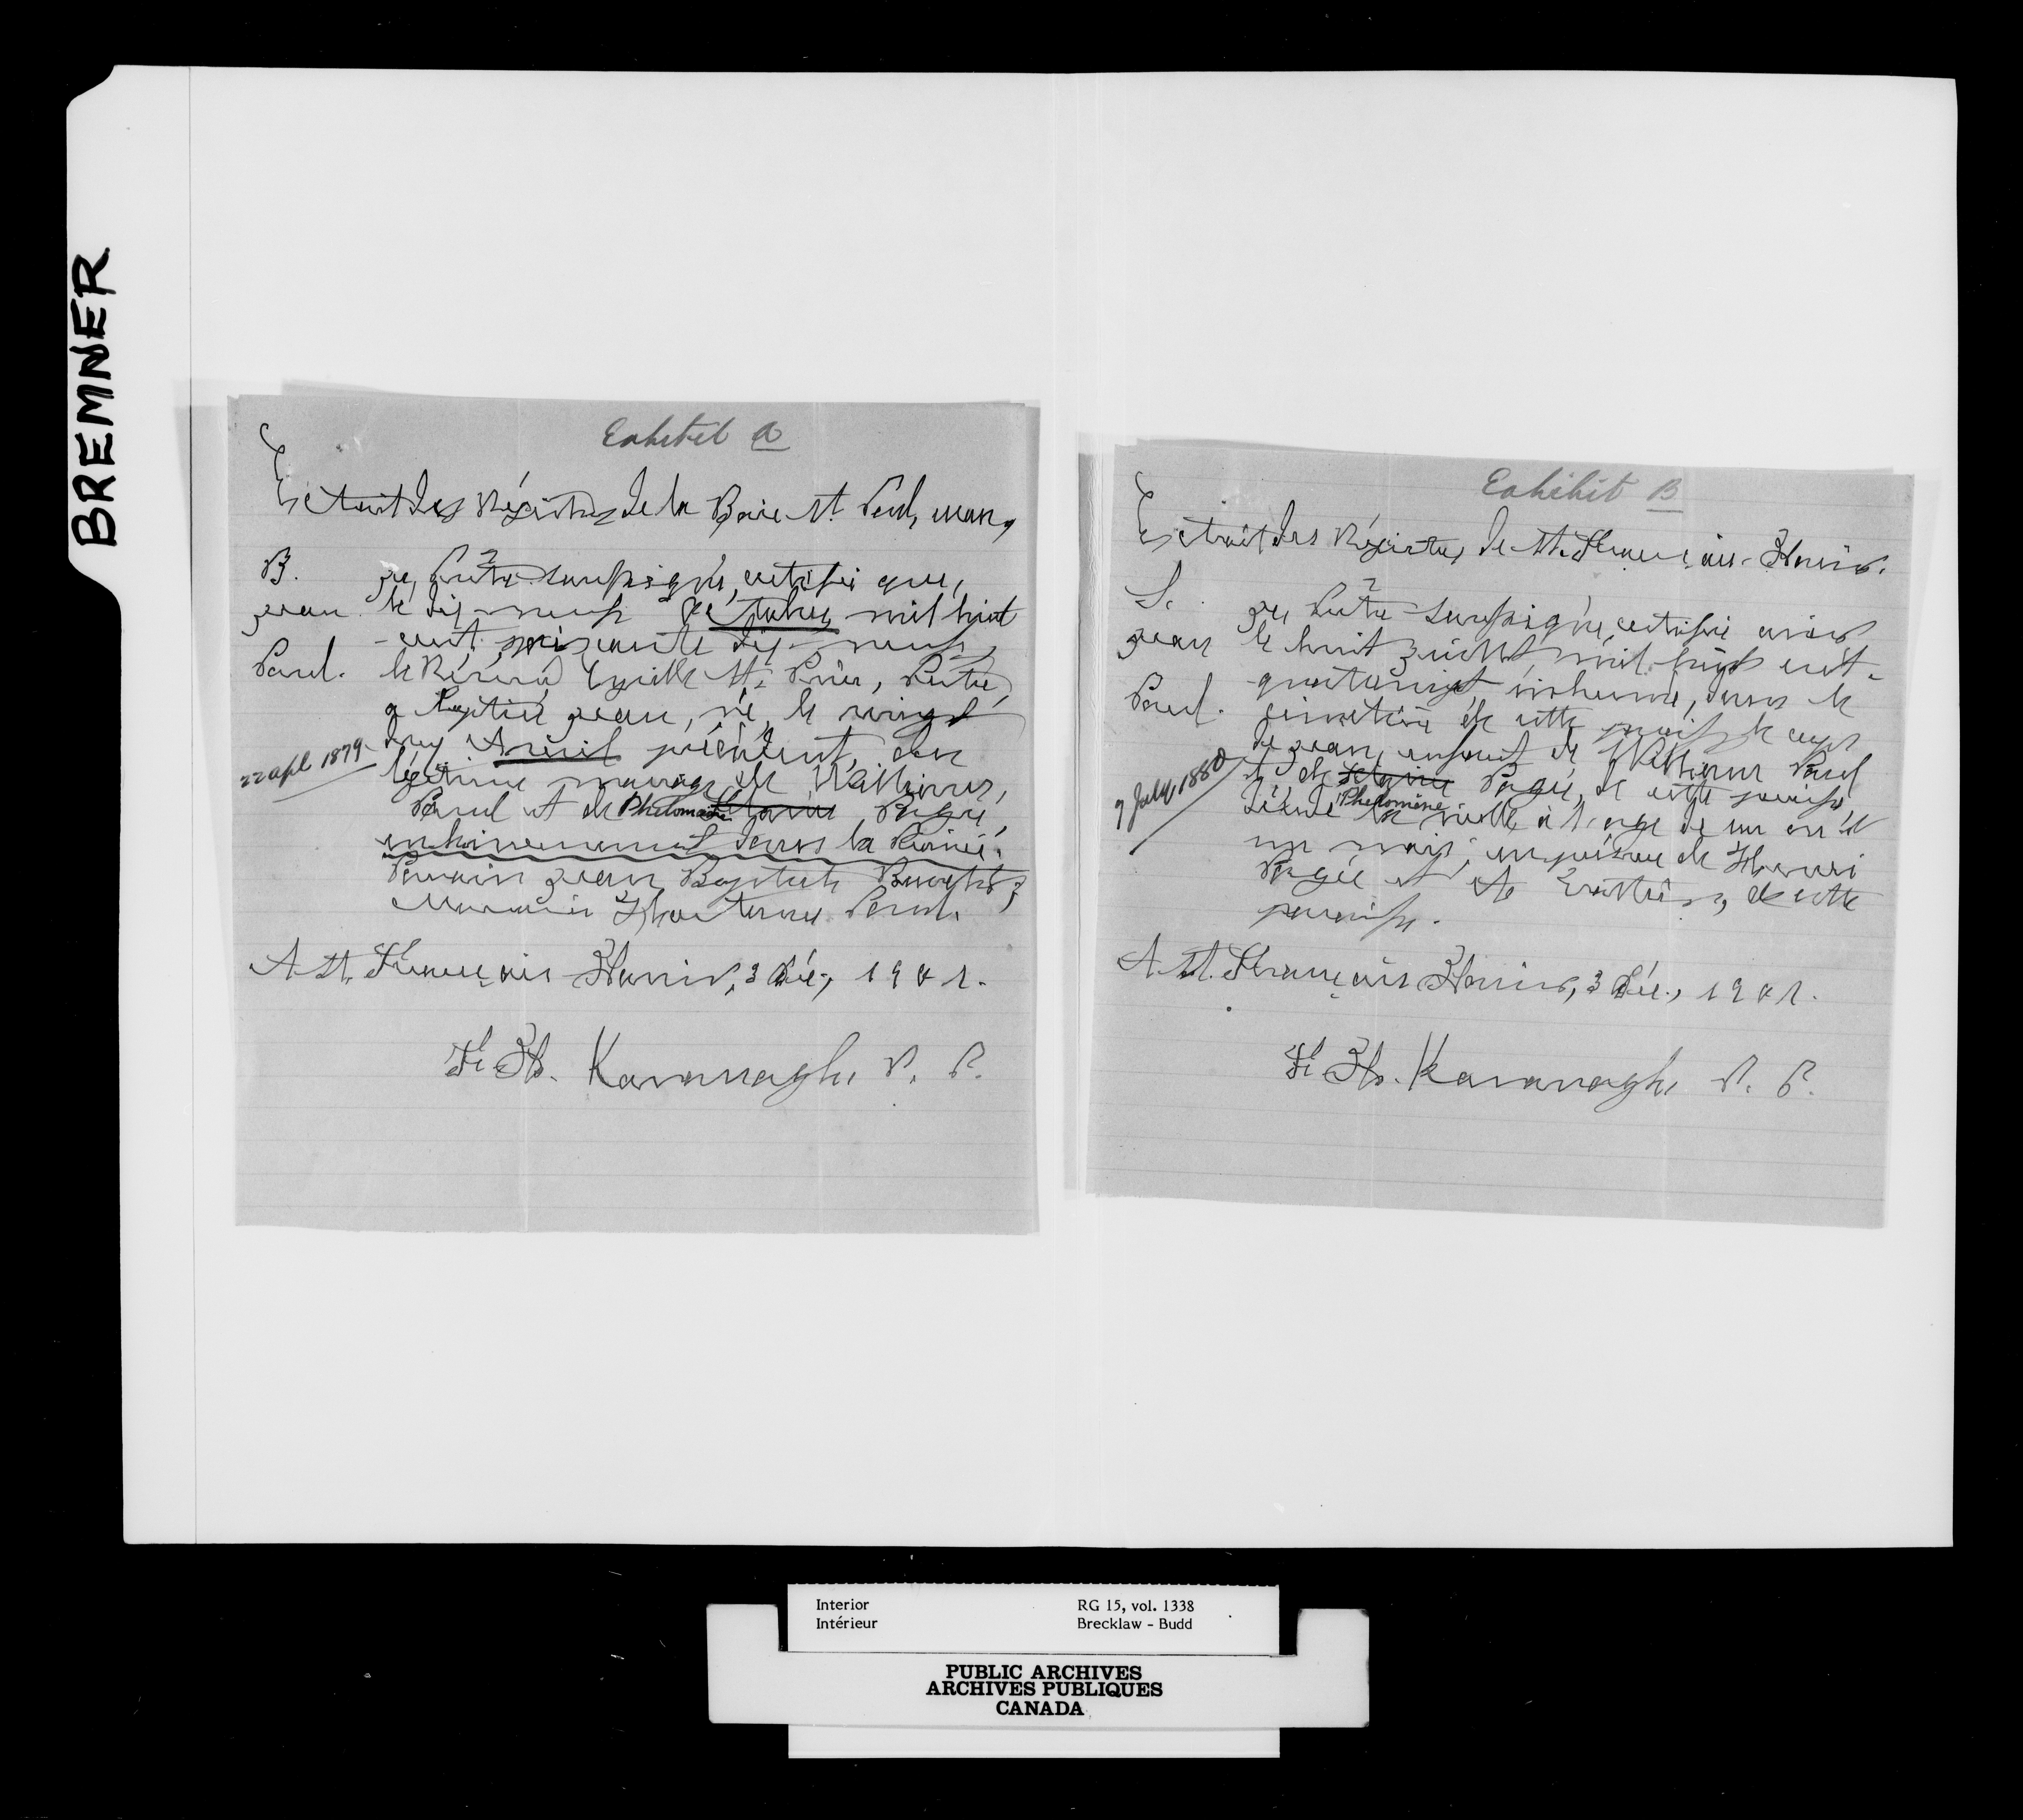 BREMNER
Exhibit A
Extrait des Régistres de la Baie St. Paul, man,
B. Je, Prêtre soussigné, certifie que,
Jean le dix-neuf Octobre mil huit
-cent soixante dix-neuf,
Paul. le Révérd Cyrille St. Pierre, Prêtre,
a baptisé Jean, né, le vingt
22 apl 1879 deux Avril précédent, du
légitime mariage de William,
Paul et de Philomène Pagé,
dans la Prairie.
Parrain Jean Baptiste
Marraine Paul.
A St. François-Xavier, 3 Déc., 1901.
Fr. X. Kavanagh, P. C.
Exhibit B
Extrait des Régistres de St. François-Xavier.
S. Je, Prêtre-soussigné, certifie avoir
Jean le huit Juillet, mil-huit cent-
Paul. quatrevingt, inhumé, dans le
cimetière de cette paroisse le corps
de Jean, enfant de William Paul
9 July, 1880 et de Philomène Pagé, de cette paroisse,
décédé la veille à l'age de un an et
un mois; en présence de Henri
Pagé et de, de cette
paroisse.
A St. François Xavier, 3 Déc., 1901.
Fr. X. Kavanagh, P. C.
Interior RG 15, vol. 1338
Intérieur Brecklaw - Budd
PUBLIC ARCHIVES
ARCHIVES PUBLIQUES
CANADA